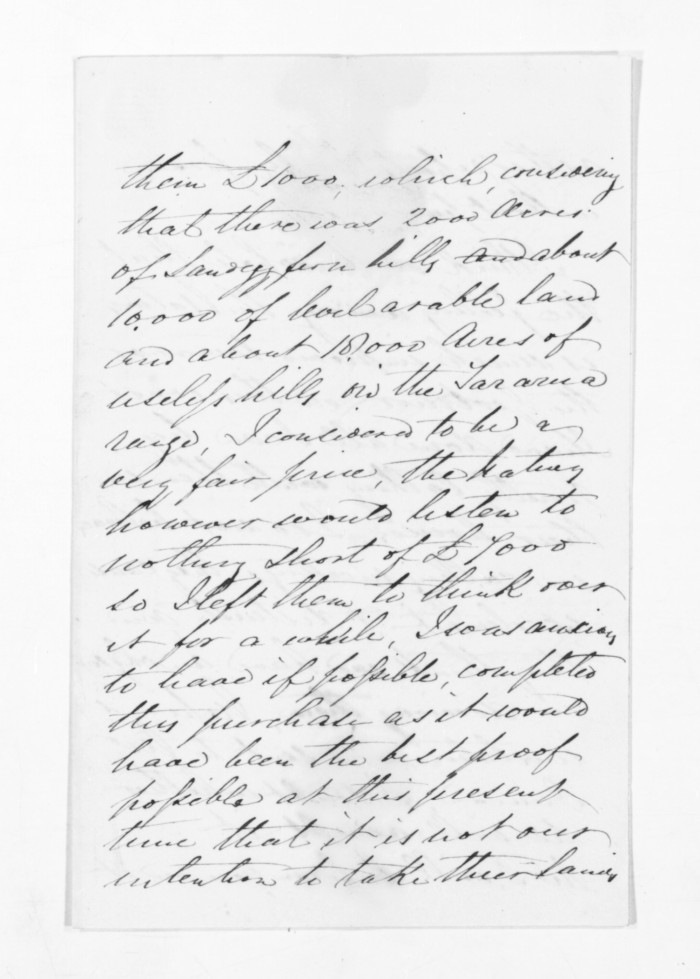 them £1000, which, considering
that there was 2000 Acres
of Sandy fern hills and about
10.000 of level arable land
and about 18,000 Acres of
useless hills on the Tararua
range, I considered to be a
very fair price, the Natives
however would listen to
nothing short of £7000
so I left them to think over
it for a while, I was anxious
to have if possible, completed
this purchase as it would
have been the best proof
possible at this present
time that it is not our
intention to take their Lands